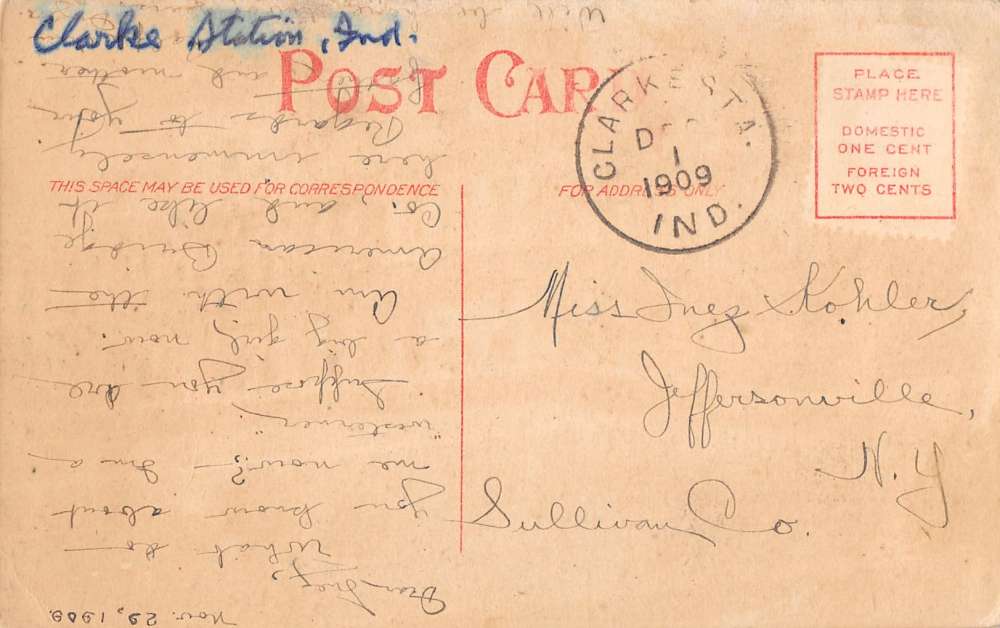 Clarke Station, Ind.
POST CARD
CLARKE STA.
DEC
1
1909
IND.
PLACE
STAMP HERE
DOMESTIC
ONE CENT
FOREIGN
TWO CENTS
THIS SPACE MAY BE USED FOR CORRESPONDENCE
FOR ADDRESS ONLY
Miss Inez Kohler,
Jeffersonville,
N. Y
Sullivan Co.
Nov. 29, 1909.
Dear Inez,
What do
you know about
me now? I'm a
"westerner"
Suppose you are
a big girl now.
Am with the
American Bridge
Co., and like it
here immensely
Regards to your
and mother
Will be